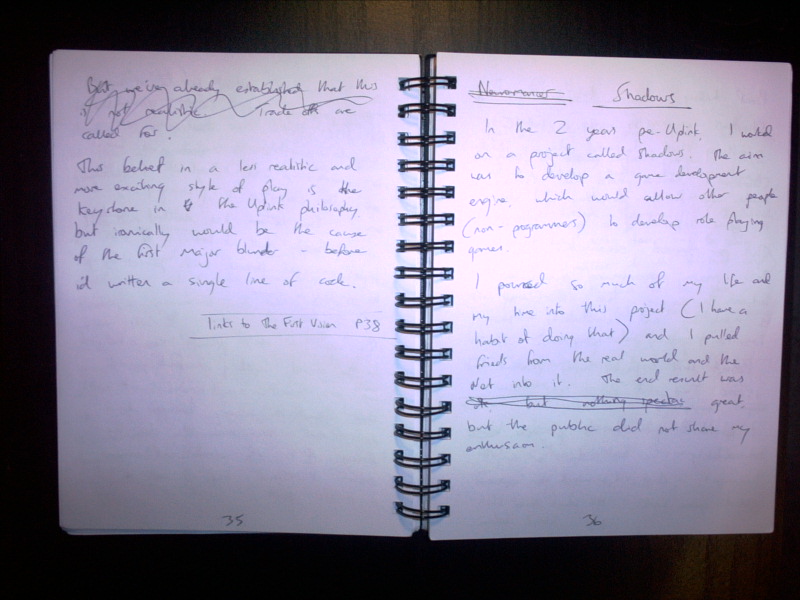 But we've already established that this
is not realistic. Trade offs are
called for.
This belief in a less realistic and
more exciting style of play is the
keystone in the Uplink philosophy
but ironically would be the cause
of the first major blunder - before
i'd written a single line of code.
links to The First Vision P38
35
Neuromancer Shadows
In the 2 years pre-Uplink, I worked
on a project called Shadows. The aim
was to develop a game development
engine, which would allow other people
(non-programmers) to develop role playing
games.
I poured so much of my life and
my time into this project (I have a
habit of doing that) and I pulled
friends from the real world and the
Net into it. The end result was
but nothing great,
but the public did not share my
enthusiasm.
36